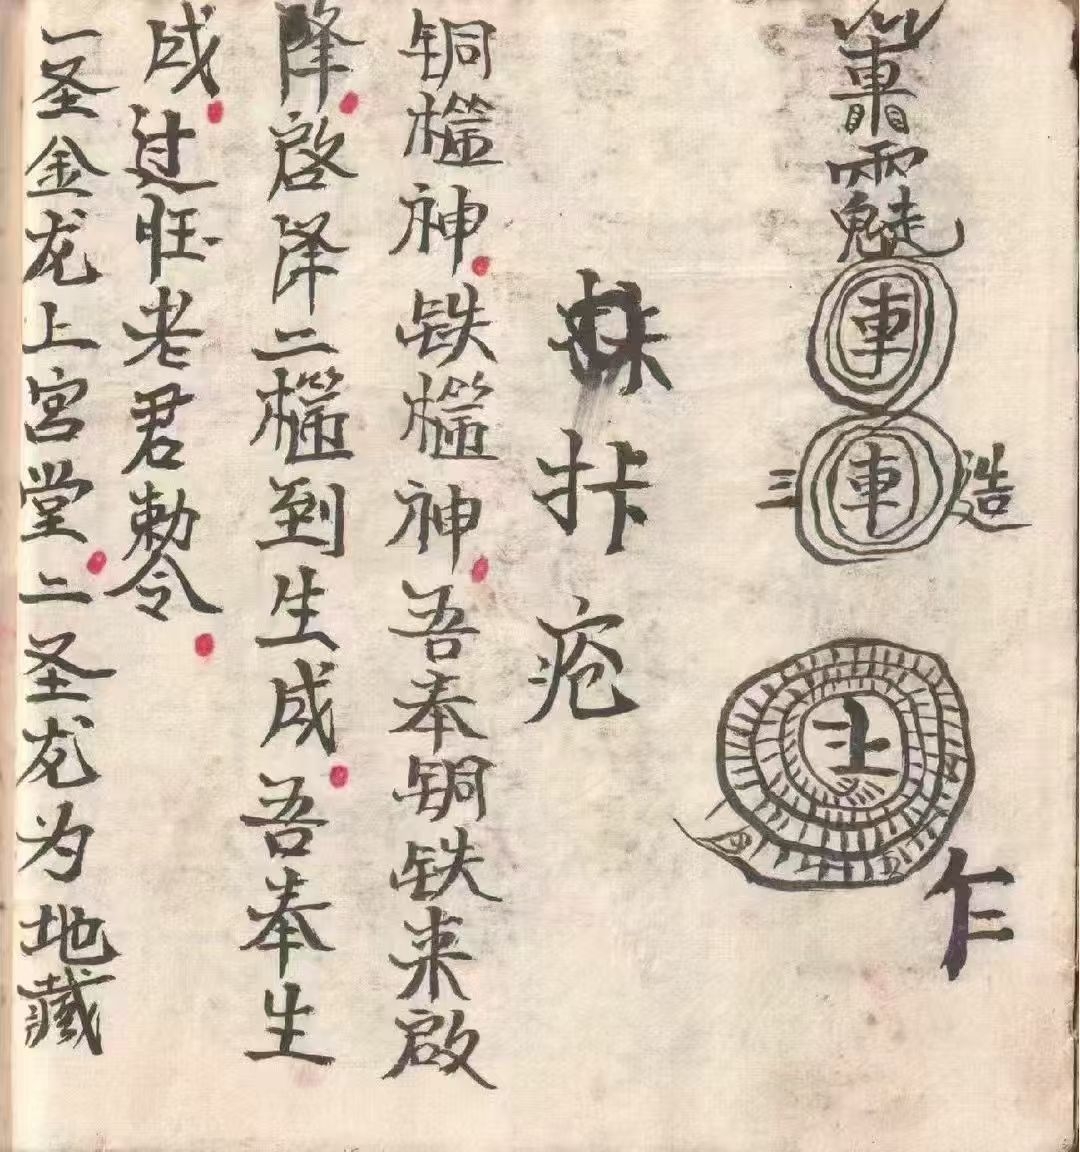 車
車
三 造
上
乍
疮
铜槛神铁槛神吾奉铜铁来啟
降啓降二槛到生成吾奉生
成过旺老君勅令
一圣金龙上宫堂二圣龙为地藏